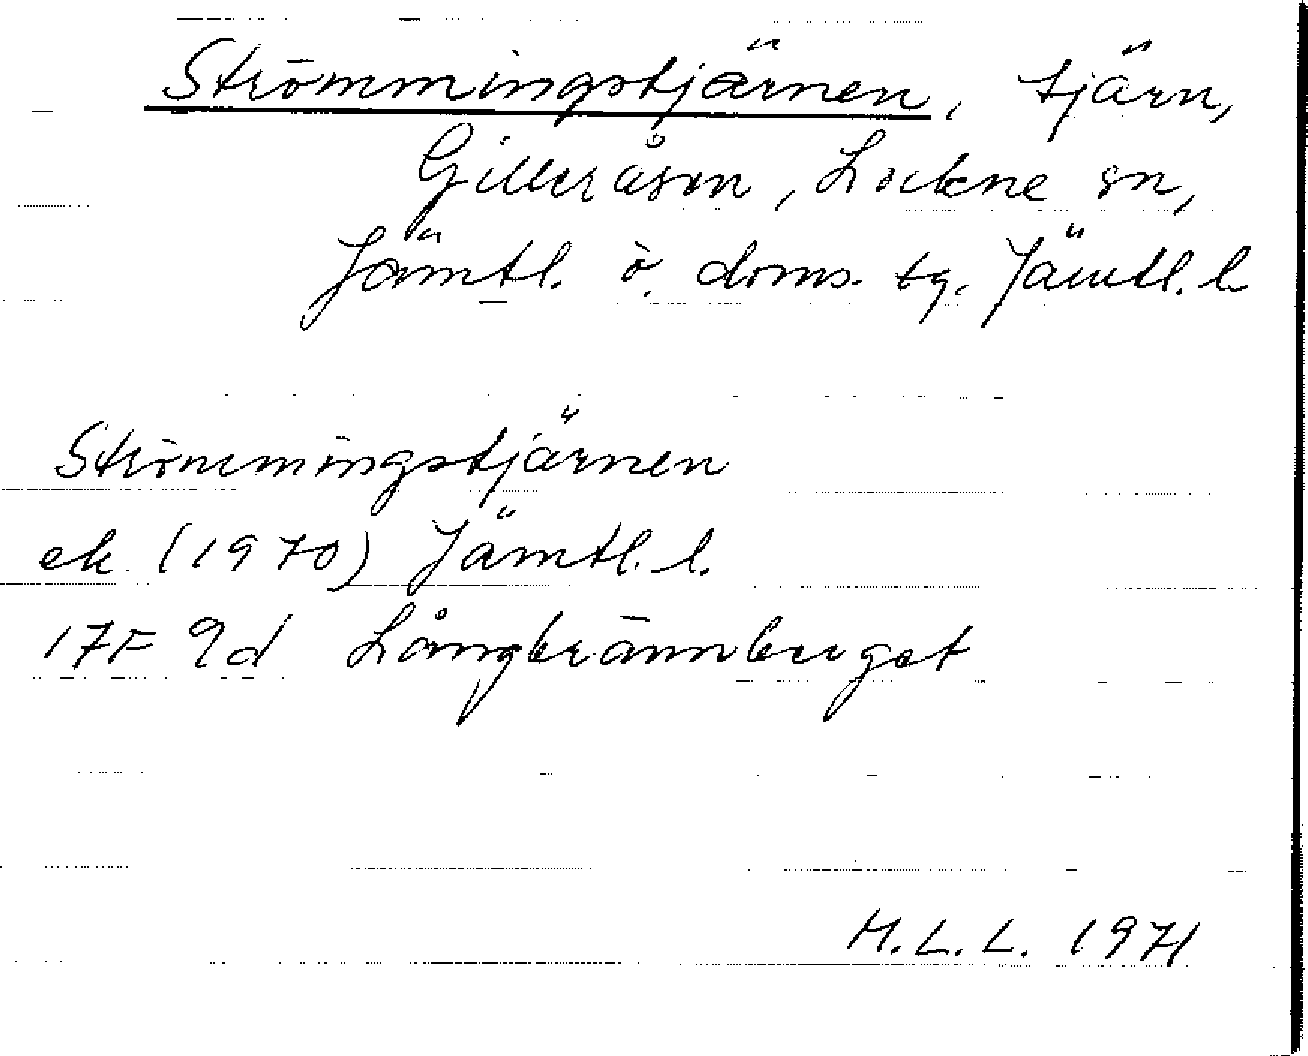 Strömmingstjärnen, tjärn,
Gilleråsen, Lockne sn,
Jämtl. ö. doms. tg. Jämtl. l.
Strömmingstjärnen
ek (1970) Jämtl. l.
17F 9d Långbrännberget
M.L.L. 1971